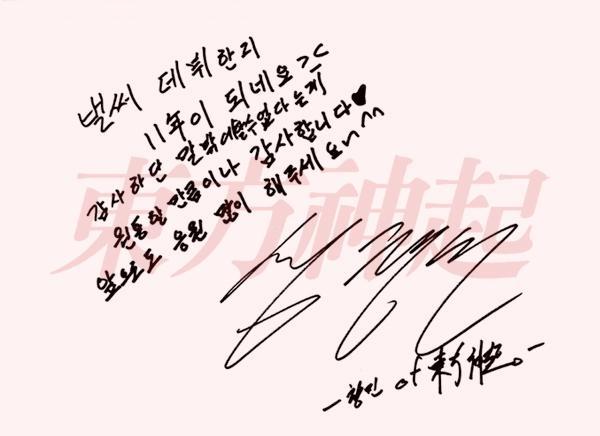 벌써 데뷔한지
11年이 되네요><
감사하단 말밖에 할수없다는게
원통할 만큼이나 감사합니다♥
앞으로도 응원 많이 해주세요~^^
東方神起
-창민 of 東方神起-